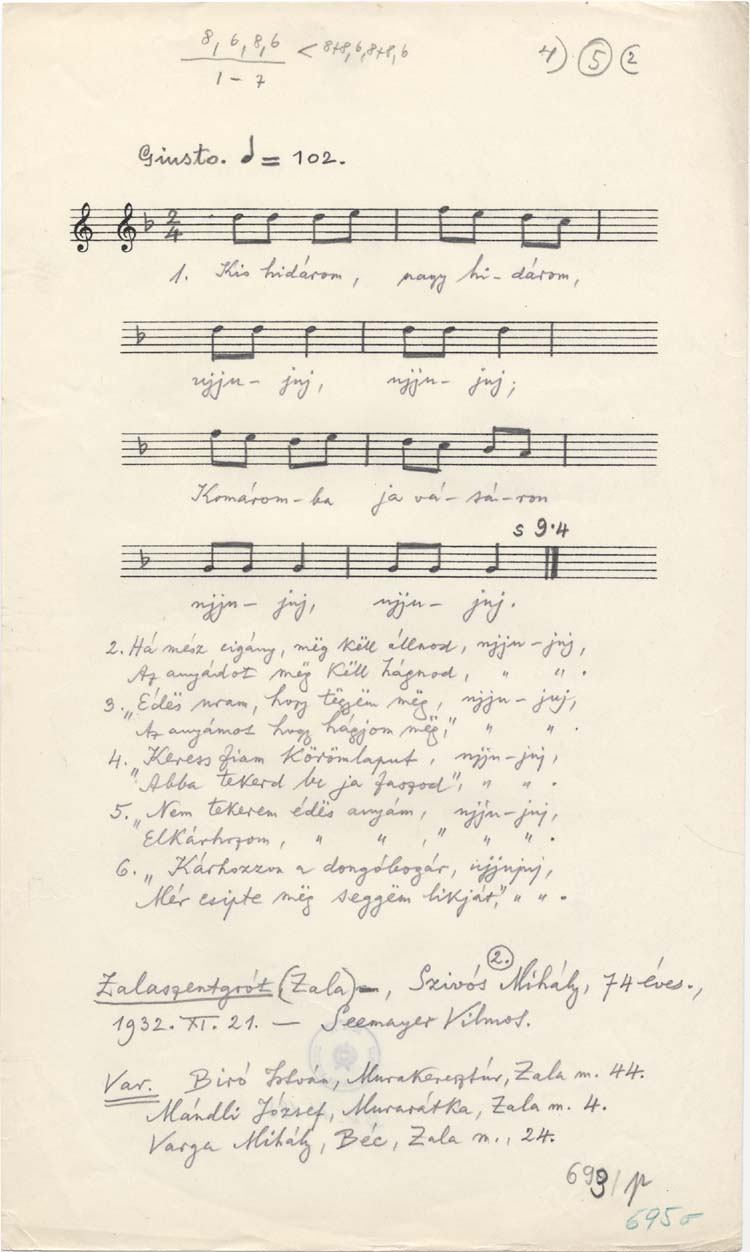 8, 6, 8, 6 < 8+8, 6, 8+8, 6
1 – 7
4) 5 2
Giusto. = 102.
2
4
1. Kis hidárom, nagy hi-dárom,
ujju- juj, ujju- juj;
Komárom-ba ja vá-sá-ron
s 9.4
ujju- juj, ujju- juj.
2. Há mész cigány, mëg këll állnod, ujju-juj,
Az anyádot mëg këll hágnod, " " .
3. „Édës uram, hogy tëgyem mëg, ujju-juj,
Az anyámot hogy hágjom mëg," " " .
4. „Keress fiam körömlaput, ujju-juj,
Abba tekerd be ja faszod", " " .
5. „Nem tekerem édës anyám, ujju-juj,
Elkárhozom, " " ," " " .
6. „Kárhozzon a dongóbogár, ujjujuj,
Mér csipte mëg seggëm likját," " " .
2.
Zalaszentgrót (Zala) –, Szivós Mihály, 74 éves.,
1932. XI. 21. — Seemayer Vilmos.
Var. Biró István, Murakeresztúr, Zala m. 44.
Mándli József, Murarátka, Zala m. 4.
Varga Mihály, Béc, Zala m., 24.
695σ